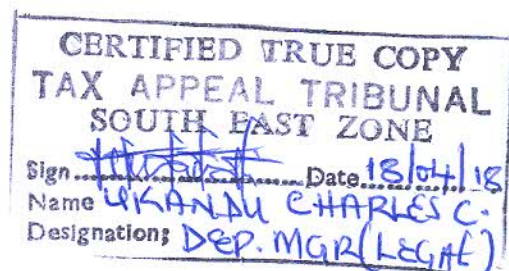 CERTIFIED TRUE COPY
TAX APPEAL TRIBUNAL
SOUTH EAST ZONE
Sign.................... Date 18/04/18
Name UKANDU CHARLES C.
Designation: DEP. MGR (LEGAL)